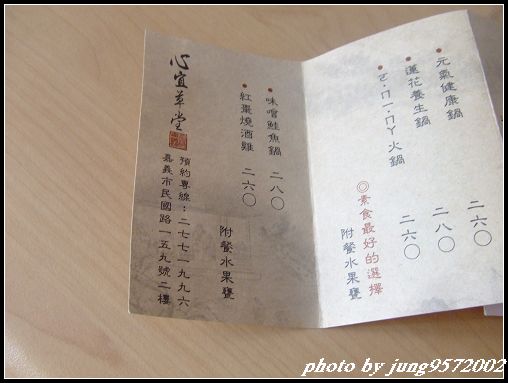 元氣健康鍋 二六〇
蓮花養生鍋 二八〇
ㄛ・ㄇㄧ・ㄇㄚ火鍋 二六〇
◎素食最好的選擇
附餐水果甕
味噌鮭魚鍋 二八〇
紅棗燒酒雞 二六〇
附餐水果甕
心宜草堂
預約專線：二七七一九九六
嘉義市民國路一五九號二樓
photo by jung9572002